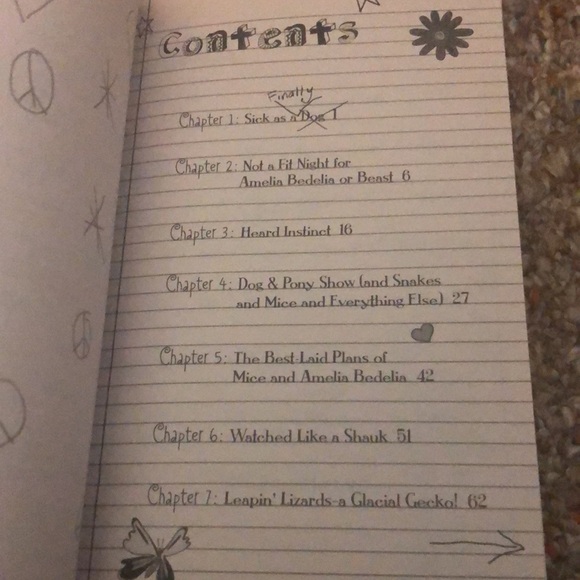 Contents
Finally
Chapter 1: Sick as a Dog 1
Chapter 2: Not a Fit Night for
Amelia Bedelia or Beast 6
Chapter 3: Heard Instinct 16
Chapter 4: Dog & Pony Show (and Snakes
and Mice and Everything Else) 27
Chapter 5: The Best-Laid Plans of
Mice and Amelia Bedelia 42
Chapter 6: Watched Like a Shauk 51
Chapter 7: Leapin' Lizards–a Glacial Gecko! 62